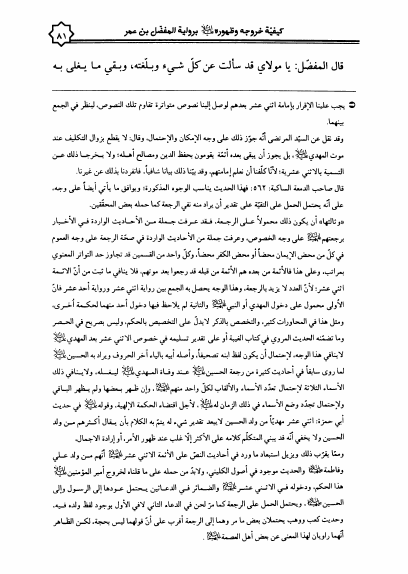 كيفيّة خروجه وظهوره برواية المفضّل بن عمر
٨١
قال المفضّل: يا مولاي قد سألت عن كلّ شيء وبلّغته، وبقي ما يغلى به
يجب علينا الإقرار بإمامة اثني عشر بعدهم لوصل إلينا نصوص متواترة تقاوم تلك النصوص، لينظر في الجمع
بينهما.
وقد نقل عن السيّد المرتضى أنّه جوّز ذلك على وجه الإمكان والإحتمال، وقال: لا يقطع بزوال التكليف عند
موت المهدي، بل يجوز أن يبقى بعده أئمّة يقومون بحفظ الدين ومصالح أهله؛ ولا يخرجنا ذلك عن
التسمية بالاثني عشرية؛ لأنّا كلّفنا أن نعلم إمامتهم، وقد بيّنّا ذلك بياناً شافياً، فانفردنا بذلك عن غيرنا.
قال صاحب الدمعة الساكبة: ٥٦٢: فهذا الحديث يناسب الوجوه المذكورة؛ ويوافق ما يأتي أيضاً على وجه،
على أنّه يحتمل الحمل على التقيّة على تقدير أن يراد منه نفي الرجعة كما حمله بعض المحقّقين.
«وثالثها» أن يكون ذلك محمولاً على الرجعة، فقد عرفت جملة من الأحاديث الواردة في الأخبار
برجعتهم على وجه الخصوص، وعرفت جملة من الأحاديث الواردة في صحّة الرجعة على وجه العموم
في كلّ من محض الإيمان محضاً أو محض الكفر محضاً، وكلّ واحد من القسمين قد تجاوز حد التواتر المعنوي
بمراتب، وعلى هذا فالأئمّة من بعده هم الأئمّة من قبله قد رجعوا بعد موتهم. فلا ينافي ما ثبت من أنّ الائمة
اثني عشر؛ لأنّ العدد لا يزيد بالرجعة، وهذا الوجه يحصل به الجمع بين رواية اثني عشر ورواية أحد عشر فإنّ
الأولى محمول على دخول المهدي أو النبي والثانية لم يلاحظ فيها دخول أحد منهما لحكمة أخرى،
ومثل هذا في المحاورات كثير، والتخصص بالذكر لا يدلّ على التخصيص بالحكم، وليس بصريح في الحصر
وما تضمّنه الحديث المروي في كتاب الغيبة أو على تقدير تسليمه في خصوص الاثني عشر بعد المهدي
لا ينافي هذا الوجه، لإحتمال أن يكون لفظ ابنه تصحيفاً، وأصله أبيه بالياء آخر الحروف ويراد به الحسين
لما روي سابقاً في أحاديث كثيرة من رجعة الحسين عند وفاة المهدي ليغسله، ولا ينافي ذلك
الأسماء الثلاثة لإحتمال تعدّد الأسماء والألقاب لكلّ واحد منهم، وإن ظهر بعضها ولم يظهر الباقي
ولإحتمال تجدّد وضع الأسماء في ذلك الزمان له، لأجل اقتضاء الحكمة الإلهية، وقوله في حديث
أبي حمزة: اثني عشر مهديّاً من ولد الحسين لا يبعد تقدير شيء له يتمّ به الكلام بأن يقال أكثرهم من ولد
الحسين ولا يخفى أنّه قد يبني المتكلّم كلامه على الأكثر إلّا غلب عند ظهور الأمر، أو إرادة الاجمال.
وممّا يقرّب ذلك ويزيل استبعاد ما ورد في أحاديث النصّ على الأئمّة الاثني عشر أنّهم من ولد علي
وفاطمة والحديث موجود في أصول الكليني، ولابدّ من حمله على ما قلناه لخروج أمير المؤمنين
هذا الحكم، ودخوله في الاثني عشر والضمائر في الدعائين يحتمل عودها إلى الرسول وإلى
الحسين. ويحتمل الحمل على الرجعة كما مرّ لحن في الدعاء الثاني لافي الأول بوجود لفظ ولده فيه،
وحديث كعب ووهب يحتملان بعض ما مر وهما إلى الرجعة أقرب على أنّ قولهما ليس بحجة، لكن الظاهر
أنّهما راويان لهذا المعنى عن بعض أهل العصمة.